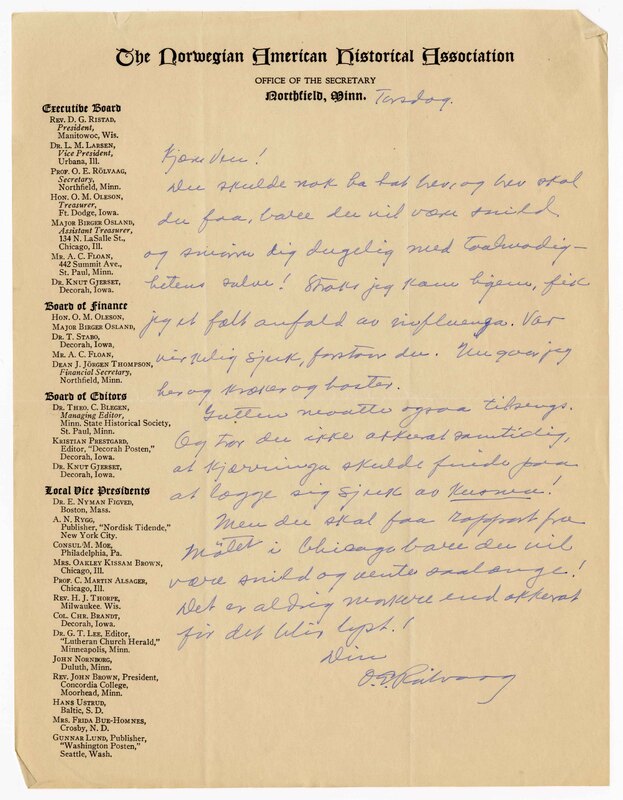 The Norwegian American Historical Association
OFFICE OF THE SECRETARY
Northfield, Minn.
Torsdag.
Executive Board
REV. D. G. RISTAD,
President,
Manitowoc, Wis.
DR. L. M. LARSEN,
Vice President,
Urbana, Ill.
PROF. O. E. RÖLVAAG,
Secretary,
Northfield, Minn.
HON. O. M. OLESON,
Treasurer,
Ft. Dodge, Iowa.
MAJOR BIRGER OSLAND,
Assistant Treasurer,
134 N. LaSalle St.,
Chicago, Ill.
MR. A. C. FLOAN,
442 Summit Ave.,
St. Paul, Minn.
DR. KNUT GJERSET,
Decorah, Iowa.
Board of Finance
HON. O. M. OLESON,
MAJOR BIRGER OSLAND,
DR. T. STABO,
Decorah, Iowa.
MR. A. C. FLOAN,
DEAN J. JÖRGEN THOMPSON,
Financial Secretary,
Northfield, Minn.
Board of Editors
DR. THEO. C. BLEGEN,
Managing Editor,
Minn. State Historical Society,
St. Paul, Minn.
KRISTIAN PRESTGARD,
Editor, "Decorah Posten,"
Decorah, Iowa.
DR. KNUT GJERSET,
Decorah, Iowa.
Local Vice Presidents
DR. E. NYMAN FIGVED,
Boston, Mass.
A. N. RYGG,
Publisher, "Nordisk Tidende,"
New York City.
CONSUL M. MOE,
Philadelphia, Pa.
MRS. OAKLEY KISSAM BROWN,
Chicago, Ill.
PROF. C. MARTIN ALSAGER,
Chicago, Ill.
REV. H. J. THORPE,
Milwaukee. Wis.
COL. CHR. BRANDT,
Decorah, Iowa.
DR. G. T. LEE, Editor,
"Lutheran Church Herald,"
Minneapolis, Minn.
JOHN NORNBORG,
Duluth, Minn.
REV. JOHN BROWN, President,
Concordia College,
Moorhead, Minn.
HANS USTRUD,
Baltic, S. D.
MRS. FRIDA BUE-HOMNES,
Crosby, N. D.
GUNNAR LUND, Publisher,
"Washington Posten,"
Seattle, Wash.
Kjære Ven!
Du skulde nok ha hat brev, og brev skal
du faa, bare du vil være snild
og smøre dig dugelig med Taalmodig-
hetens salve! Straks jeg kam hjem, fik
jeg et fælt anfald av influenza. Var
virkelig sjuk, forstaar du. Nu gaar jeg
her og kræker og hoster.
Gutten maatte ogsaa tilsengs.
Og tror du ikke akkurat samtidig,
at kjærringa skulde finde paa
at lægge sig sjuk av
Men du skal faa rapport fra
Møtet i Chicago bare du vil
være snild og vente saalænge!
Det er aldrig mørkere end akkurat
før det blir lyst!
Din
O. E. Rölvaag